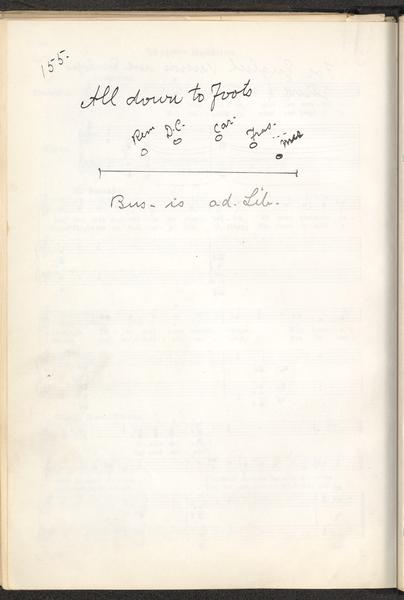 155.
All down to foots
Rem D.C. Car. Fras. Mes
Bus- is ad. Lib.